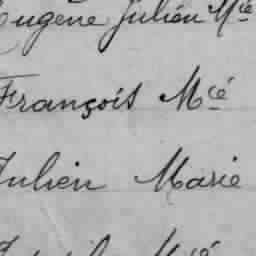 Eugène Julien Mie
François Mcé
Julien Marie